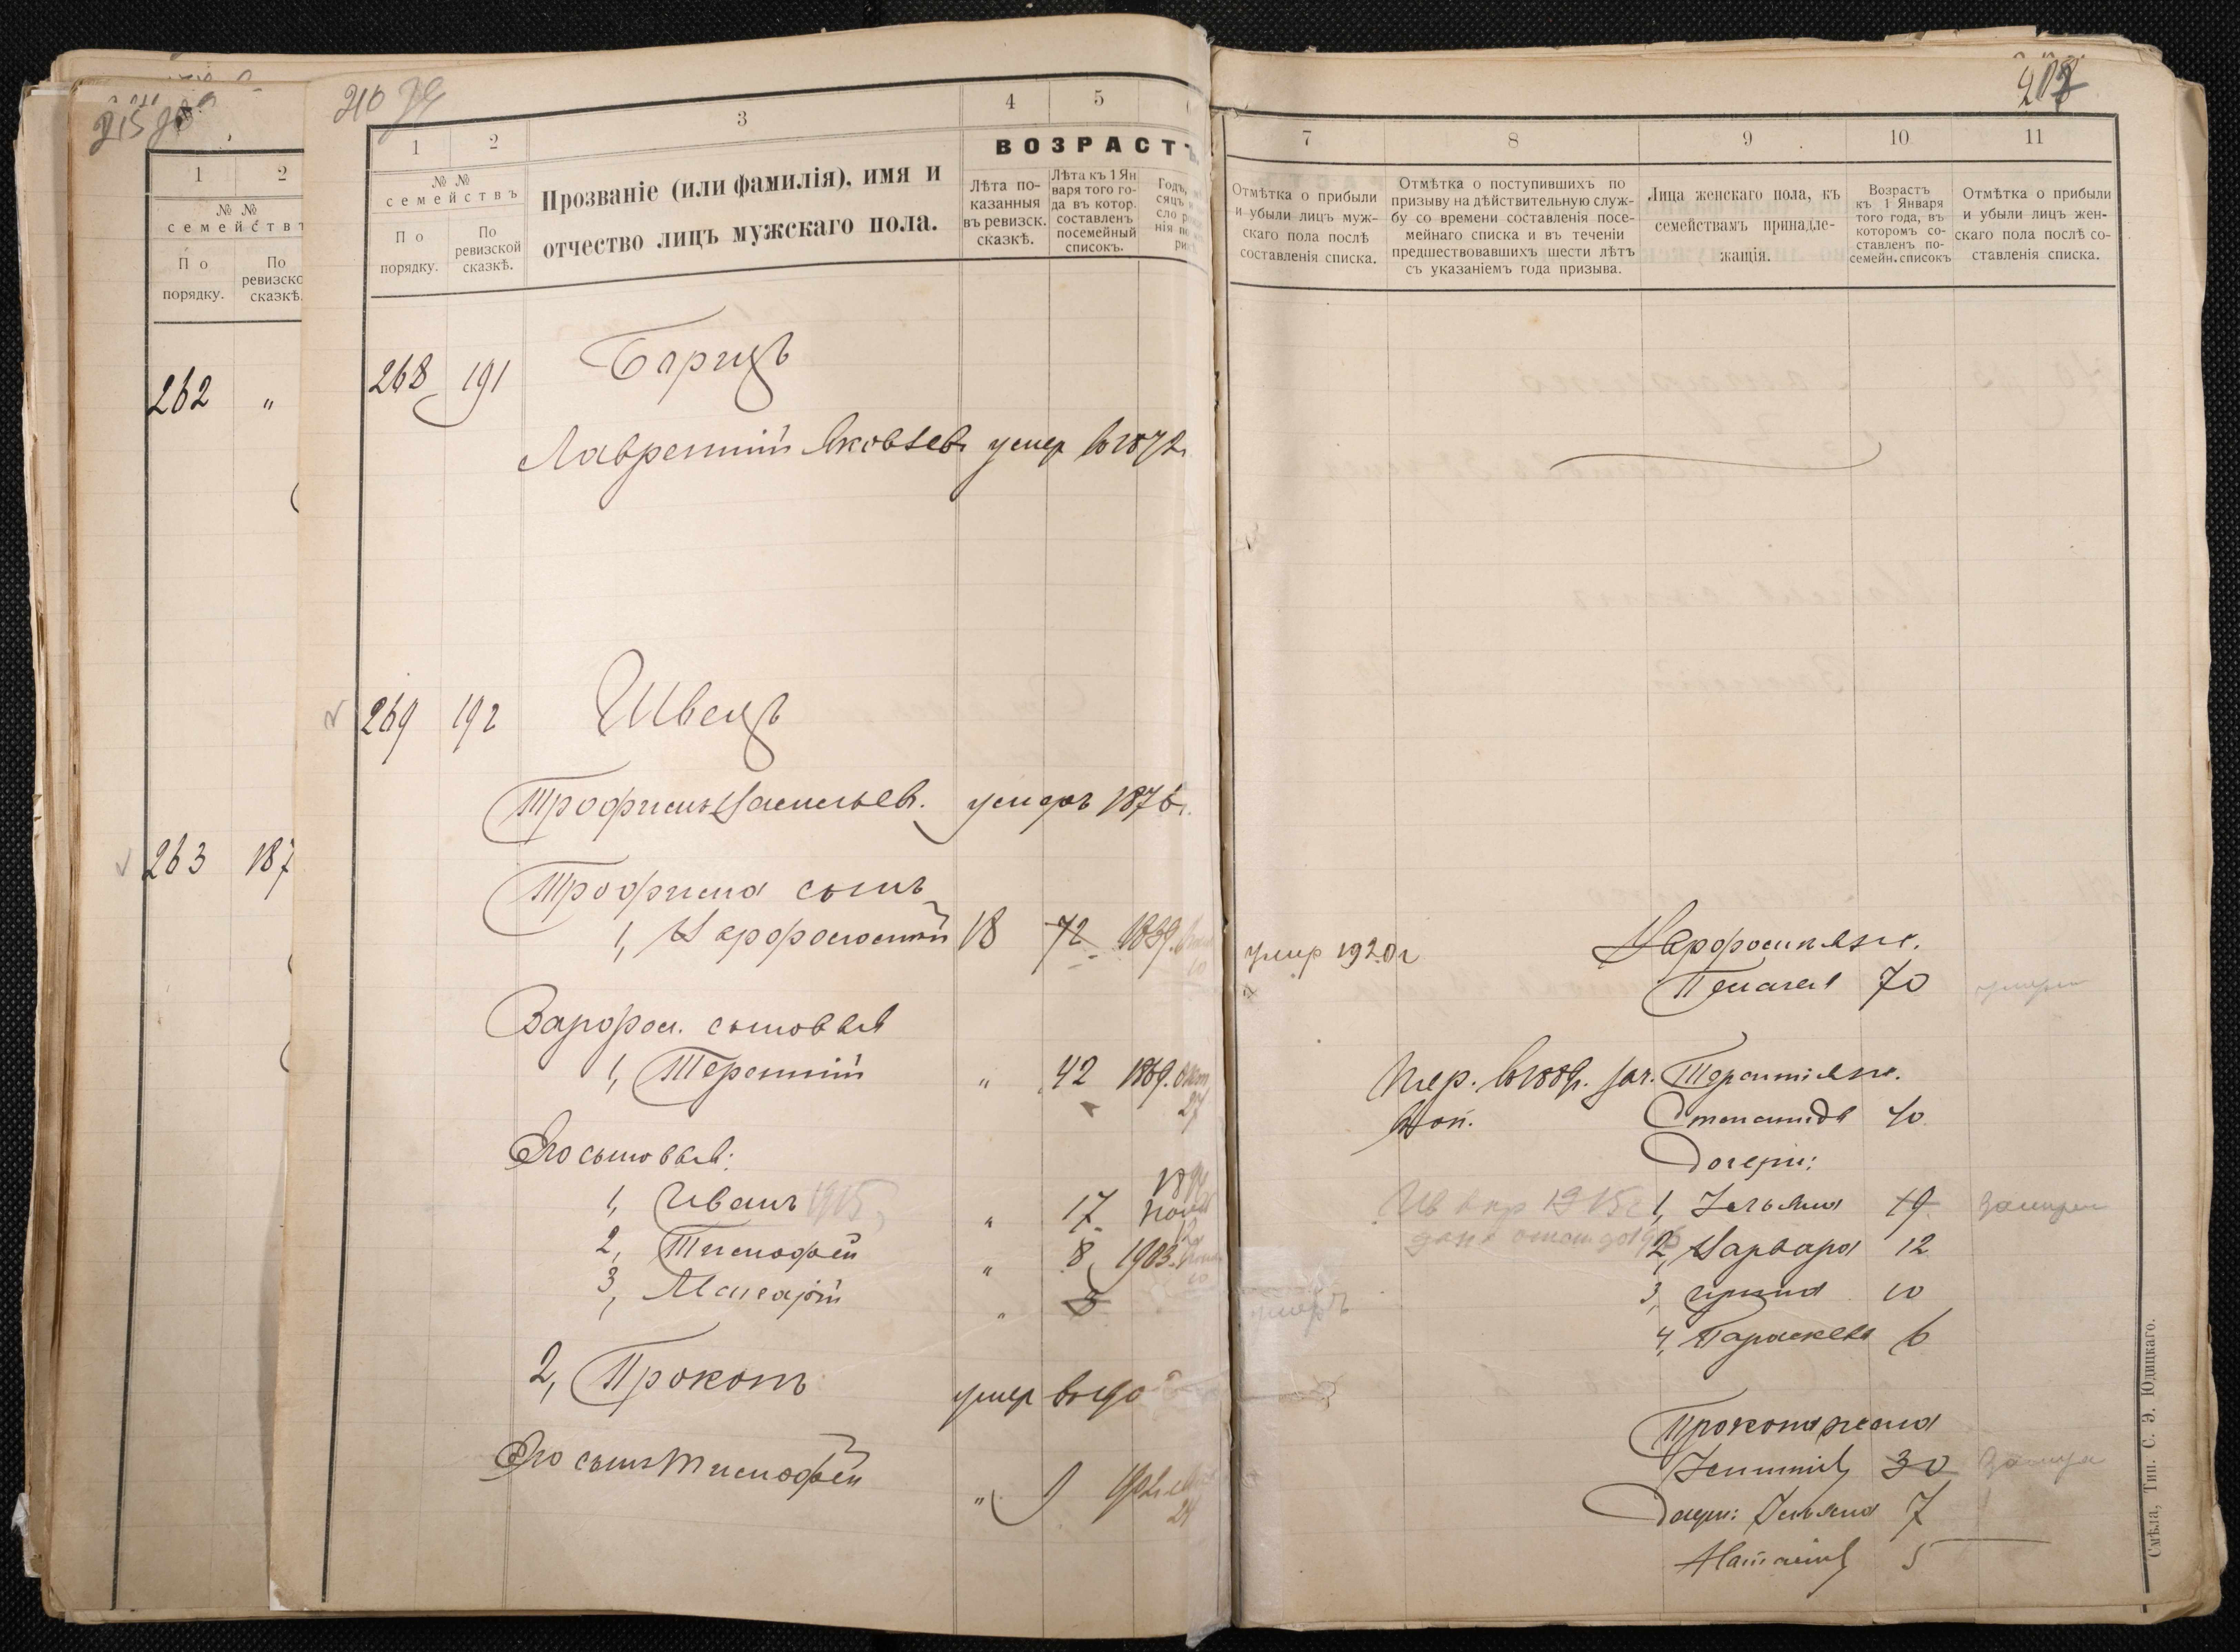 215
1 2
№ №
семействъ
По порядку.
По ревизско сказкѣ.
262 "
263 187
210
1 2 3 4 5
№ №
семействъ
По порядку.
По ревизской сказкѣ.
Прозваніе (или фамилія), имя и
отчество лицъ мужскаго пола.
ВОЗРАСТЪ
Лѣта по-
казанныя
въ ревизск.
сказкѣ.
Лѣта къ 1 Ян
варя того го-
да въ котор.
составленъ
посемейный
списокъ.
268 191
Лаврентій Яковлевъ умер в 1872
269 192 Швецъ
Трофимъ Васильев. умеръ 1876
Трофима сынъ
1, Варфоломей 18 72 1839.
Варфол. сыновья
1, Терентій " 42 1869. Окт
27
Его сыновья:
1894
1, Иванъ 1915 " 17 Нояб
12
2, Тимофей " 8 1903.
10
3, Макарій " 3
2, Прокопъ умер
Его сынъ Тимофей " 9
24
7 8 9 10 11
Отмѣтка о прибыли
и убыли лицъ муж-
скаго пола послѣ
составленія списка.
Отмѣтка о поступившихъ по
призыву на дѣйствительную служ-
бу со времени составленія посе-
мейнаго списка и въ теченіи
предшествовавшихъ шести лѣтъ
съ указаніемъ года призыва.
Лица женскаго пола, къ
семействамъ принадле-
жащія.
Возрастъ
къ 1 Января
того года, въ
которомъ со-
ставленъ по-
семейн. списокъ
Отмѣтка о прибыли
и убыли лицъ жен-
скаго пола послѣ со-
ставленія списка.
умер 1920 г
Варфоломея ж.
Пелагея 70 умерла
Терентія ж.
Степанида 40
Дочери:
1, Ульяна 19 замужем
2, Варвара 12
3, Ирина 10
умеръ
4, Параскева 6
Прокопа жена
30 замуж
Дочери: Ульяна 7
Наталія 5
Смѣла, Тип. С. Э. Юдицкаго.